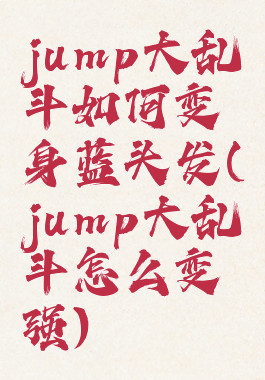 jump大乱
斗如何变
身蓝头发(
jump大乱
斗怎么变
强)